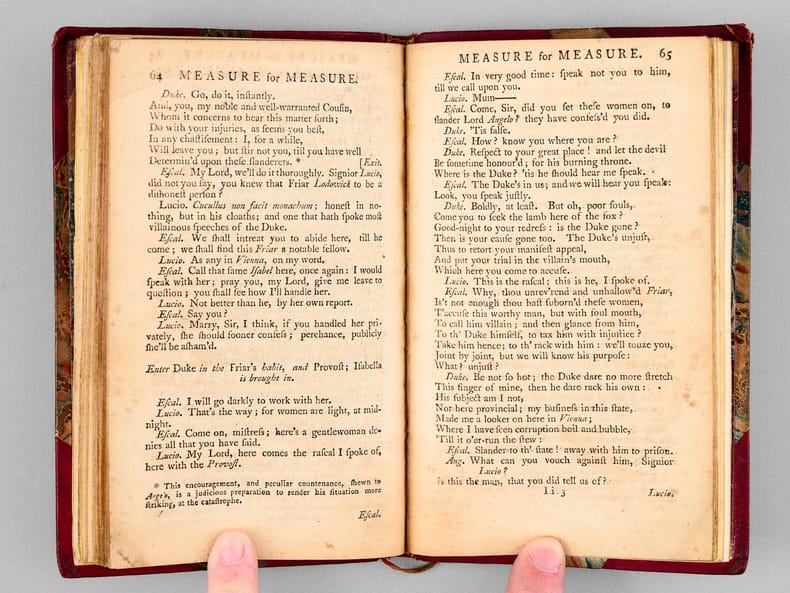 64 MEASURE for MEASURE.
Duke. Go, do it, inſtantly.
And, you, my noble and well-warranted Couſin,
Whom it concerns to hear this matter forth;
Do with your injuries, as ſeems you beſt,
In any chaſtiſement: I, for a while,
Will leave you; but ſtir not you, till you have well
Determin'd upon theſe ſlanderers. * [Exit.
Eſcal. My Lord, we'll do it thoroughly. Signior Lucio,
did not you ſay, you knew that Friar Lodowick to be a
diſhoneſt perſon?
Lucio. Cucullus non facit monachum; honeſt in no-
thing, but in his cloaths; and one that hath ſpoke moſt
villainous ſpeeches of the Duke.
Eſcal. We ſhall intreat you to abide here, till he
come; we ſhall find this Friar a notable fellow.
Lucio. As any in Vienna, on my word.
Eſcal. Call that ſame Iſabel here, once again: I would
ſpeak with her; pray you, my Lord, give me leave to
queſtion; you ſhall ſee how I'll handle her.
Lucio. Not better than he, by her own report.
Eſcal. Say you?
Lucio. Marry, Sir, I think, if you handled her pri-
vately, ſhe ſhould ſooner confeſs; perchance, publicly
ſhe'll be aſham'd.
Enter Duke in the Friar's habit, and Provoſt; Iſabella
is brought in.
Eſcal. I will go darkly to work with her.
Lucio. That's the way; for women are light, at mid-
night.
Eſcal. Come on, miſtreſs; here's a gentlewoman de-
nies all that you have said.
Lucio. My Lord, here comes the raſcal I ſpoke of,
here with the Provoſt.
* This encouragement, and peculiar countenance, ſhewn to
Angelo, is a judicious preparation to render his ſituation more
ſtriking, at the cataſtrophe.
Eſcal.
MEASURE for MEASURE. 65
Eſcal. In very good time: ſpeak not you to him,
till we call upon you.
Lucio. Mum——
Eſcal. Come, Sir, did you ſet theſe women on, to
ſlander Lord Angelo? they have confeſs'd you did.
Duke. 'Tis falſe.
Eſcal. How? know you where you are?
Duke. Reſpect to your great place! and let the devil
Be ſometime honour'd; for his burning throne.
Where is the Duke? 'tis he ſhould hear me ſpeak.
Eſcal. The Duke's in us; and we will hear you ſpeak:
Look, you ſpeak juſtly.
Duke. Boldly, at leaſt. But oh, poor ſouls,
Come you to ſeek the lamb here of the fox?
Good-night to your redreſs: is the Duke gone?
Then is your cauſe gone too. The Duke's unjuſt,
Thus to retort your manifeſt appeal,
And put your trial in the villain's mouth,
Which here you come to accuſe.
Lucio. This is the raſcal; this is he, I ſpoke of.
Eſcal. Why, thou unrev'rend and unhallow'd Friar,
Is't not enough thou haſt ſuborn'd theſe women,
T'accuſe this worthy man, but with foul mouth,
To call him villain; and then glance from him,
To th' Duke himſelf, to tax him with injuſtice?
Take him hence; to th' rack with him: we'll touze you,
Joint by joint, but we will know his purpoſe:
What? unjuſt?
Duke. Be not ſo hot; the Duke dare no more ſtretch
This finger of mine, then he dare rack his own:
His ſubject am I not,
Nor here provincial; my buſineſs in this ſtate,
Made me a looker on here in Vienna;
Where I have ſeen corruption boil and bubble,
'Till it o'er-run the ſtew:
Eſcal. Slander to th' ſtate! away with him to priſon.
Ang. What can you vouch againſt him, Signior
Lucio?
Is this the man, that you did tell us of?
Ii 3 Lucio.